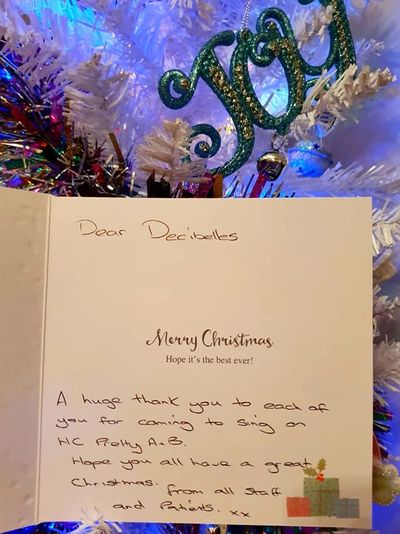 JOY
Dear Decibelles
Merry Christmas
Hope it's the best ever!
A huge thank you to each of
you for coming to sing on
HC A+B.
Hope you all have a great
Christmas. from all staff
and Patients. xx